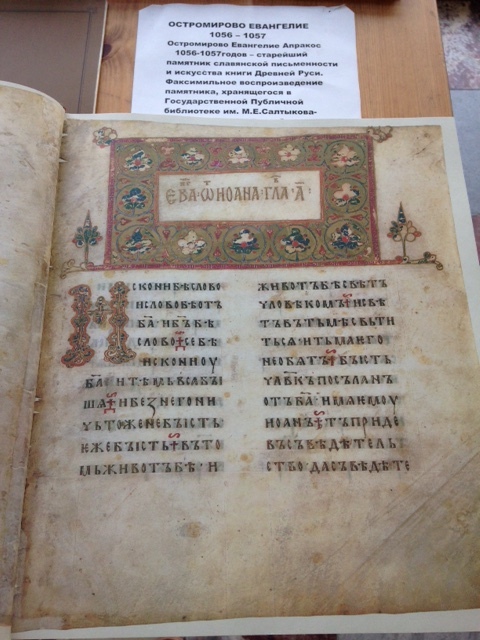 ОСТРОМИРОВО ЕВАНГЕЛИЕ
1056 – 1057
Остромирово Евангелие Апракос
1056-1057годов – старейший
памятник славянской письменности
и искусства книги Древней Руси.
Факсимильное воспроизведение
памятника, хранящегося в
Государственной Публичной
библиотеке им. М.Е.Салтыкова-
ЕВА·Ѡ ИОАНА·ГЛА·А҃:
ИСКОНИ БѢ СЛОВО
И СЛОВО БѢ ОТЪ
Б҃А И Б҃Ъ БѢ
СЛОВО СЕ БѢ
ИСКОНИ ОУ
Б҃А И ТѢМЬ ВЬСА БЫ
ШѦ И БЕЗ НЕГО НИ
ЧЬТОЖЕ НЕ БЫСТЬ
ЕЖЕ БЫСТЬ ВЪ ТО
МЬ ЖИВОТЪ БѢ · И
ЖИВОТЪ БѢ СВѢТЪ
ЧЛОВѢКОМЪ И СВѢ
ТЪ ВЪ ТЬМѢ СВЬТИ
ТЬСѦ И ТЬМА ѤГО
НЕ ОБѦТЪ БЫСТЬ
ЧЛ҃ВКЪ ПОСЪЛАНЪ
ОТЪ Б҃А ИМѦ ѤМОУ
ИОАНЪ ТЪ ПРИДЕ
ВЪ СЪВѢДѢТЕЛЬ
СТВО ДА СЪВѢДѢТЕ